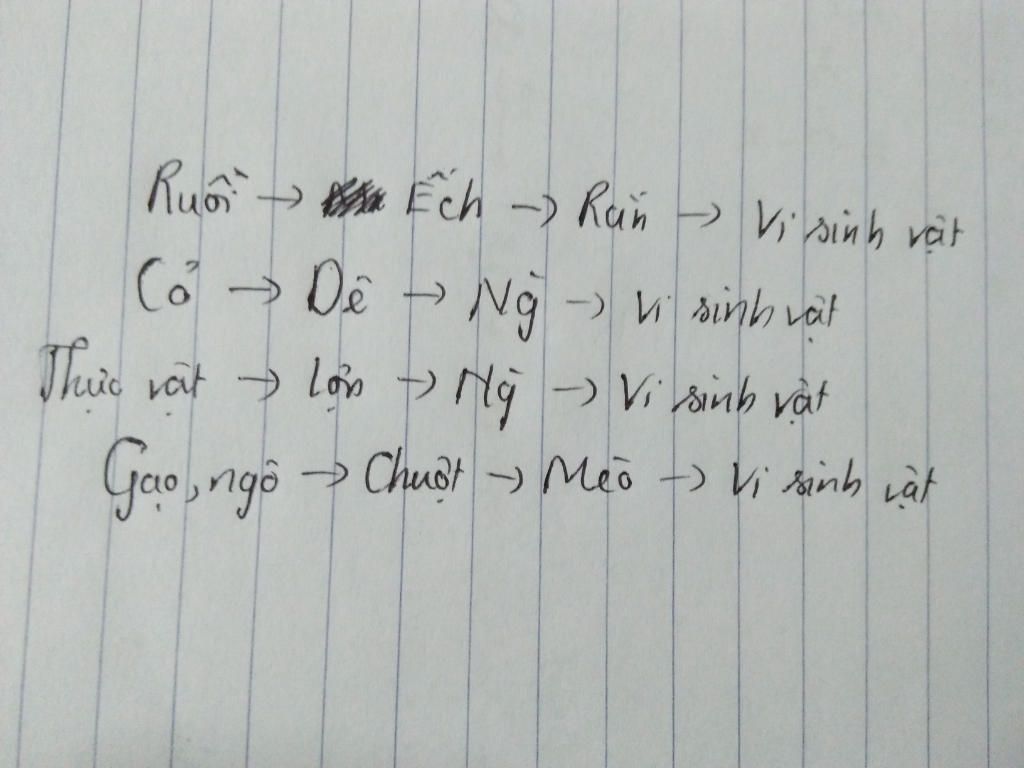 Ruồi → Ếch → Rắn → Vi sinh vật
Cỏ → Dê → Ng → Vi sinh vật
Thực vật → Lợn → Ng → Vi sinh vật
Gạo, ngô → Chuột → Mèo → Vi sinh vật